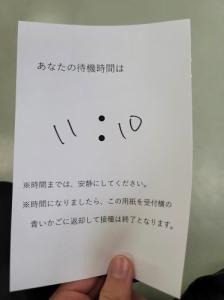 あなたの待機時間は
11:10
※時間までは、安静にしてください。
※時間になりましたら、この用紙を受付横の
青いかごに返却して接種は終了となります。